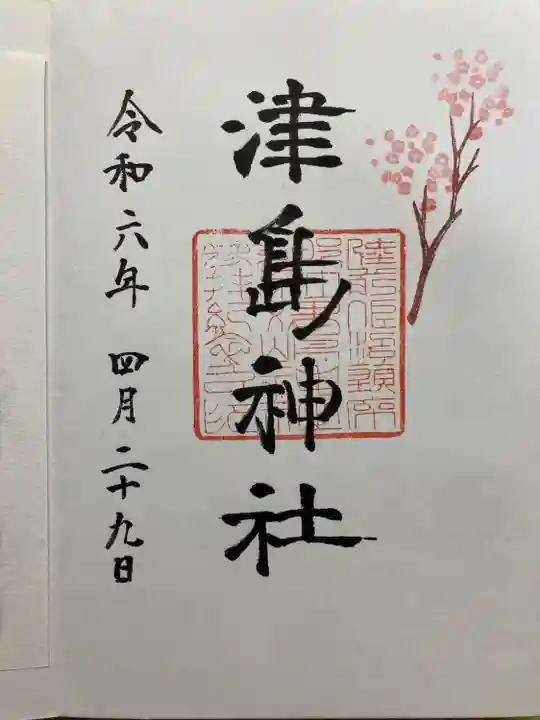 津島神社
令和六年 四月二十九日